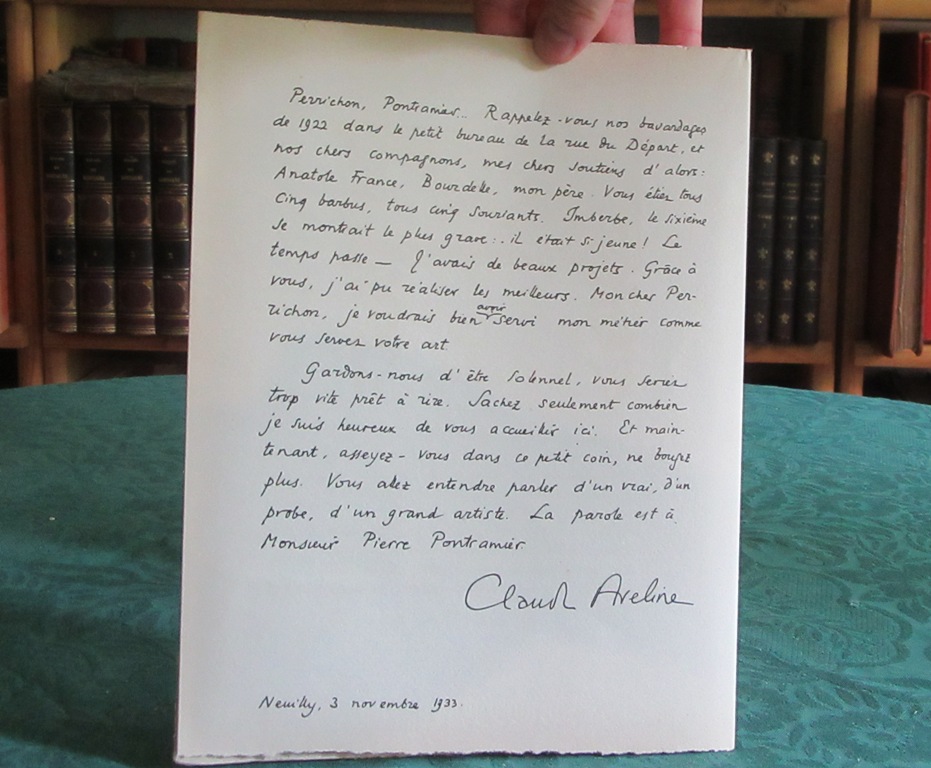 Perrichon, Pontramier... Rappelez-vous nos bavardages
de 1922 dans le petit bureau de la rue du Départ, et
nos chers compagnons, mes chers soutiens d'alors:
Anatole France, Bourdelle, mon père. Vous étiez tous
cinq barbus, tous cinq souriants. Imberbe, le sixième
se montrait le plus grave: il était si jeune! Le
temps passe — J'avais de beaux projets. Grâce à
vous, j'ai pu réaliser les meilleurs. Mon cher Per-
richon, je voudrais bien avoir servi mon métier comme
vous servez votre art.
Gardons-nous d'être solennel, vous seriez
trop vite prêt à rire. Sachez seulement combien
je suis heureux de vous accueillir ici. Et main-
tenant, asseyez-vous dans ce petit coin, ne bougez
plus. Vous allez entendre parler d'un vrai, d'un
probe, d'un grand artiste. La parole est à
Monsieur Pierre Pontramier
Claude Aveline
Neuilly, 3 novembre 1933.